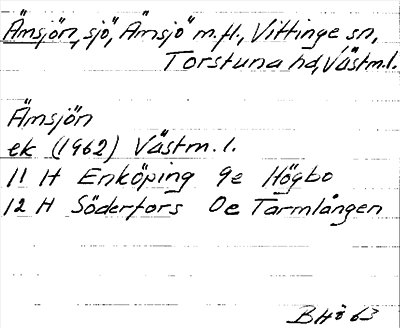 Ämsjön, sjö, Ämsjö m.fl., Vittinge sn,
Torstuna hd, Västm.l.
Ämsjön
ek (1962) Västm.l.
11 H Enköping 9e Högbo
12 H Söderfors 0e Tarmlången
BHö 63